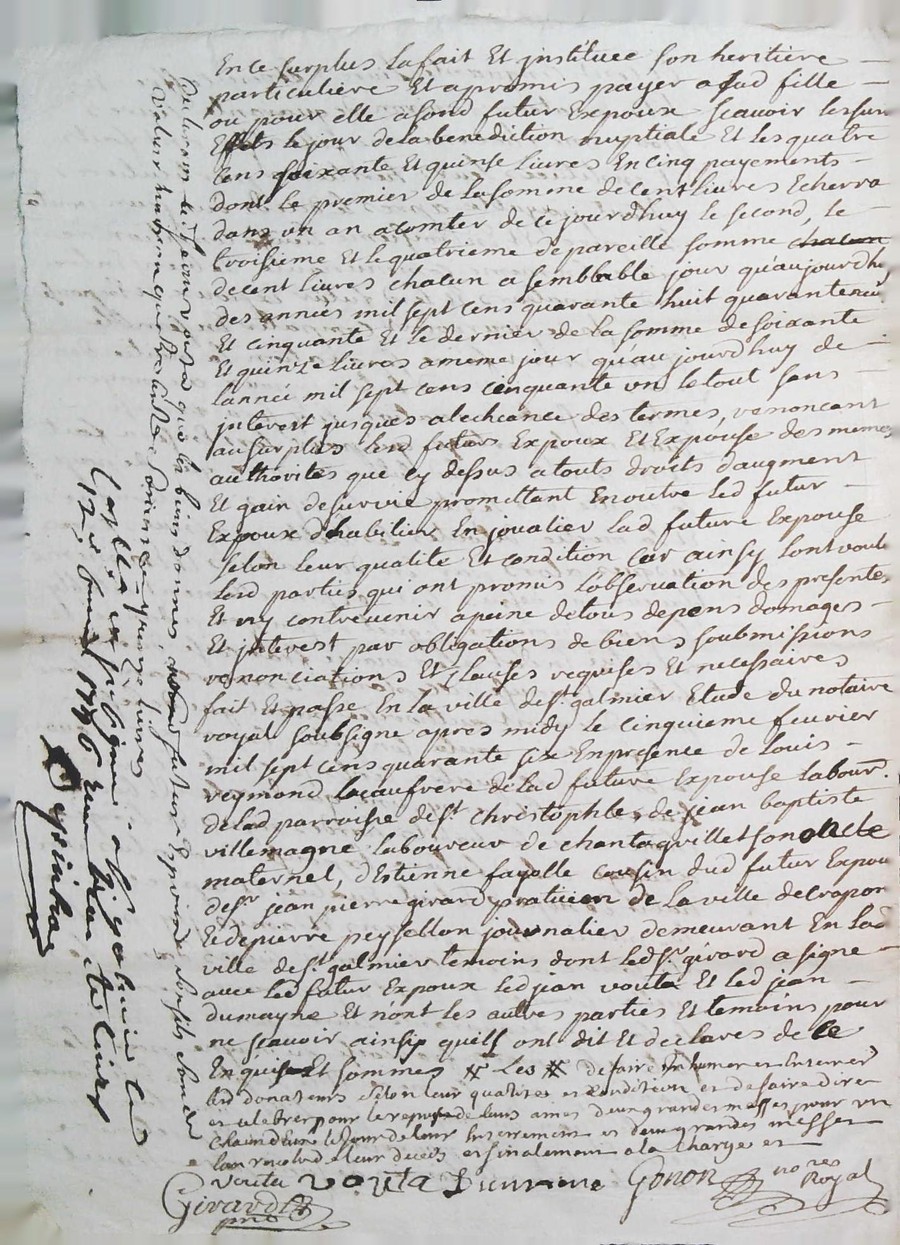 En ce surplus la fait Et jnstituee son heritiere
particuliere Et a promis payer a sad fille
ou pour elle a sond futur Expoux scavoir
Effets le jour de la benediction nuptiale Et les quatre
cens soixante Et quinse livres En cinq payements
dont le premier de la somme de cent livres Echerra
dans un an a comter de ce jourdhuy le second, le
troisieme Et le quatrieme de pareille somme chacun
de cent livres chacun a semblable jour qu'aujourdhuy
des années mil sept cens quarante huit quarante neuf
Et cinquante Et le dernier de la somme de soixante
Et quinze livres a meme jour quaujourdhuy de
lannée mil sept cens cinquante un le tout sans
jnterest jusques a lecheance des termes, renoncant
au surplus lesd futurs Expoux Et Expouse des memes
authorités que cy dessus a touts droits daugment
Et gain de survie promettant En outre led futur
Expoux dhabiller En joualier lad future Expouse
selon leur qualité Et condition car ainsy lont voulu
lesd parties qui ont promis lobservation des presentes
Et ny contrevenir a peine de tous depens domages
Et jnterest par obligations de biens soubmissions
renonciations Et clauses requises Et necessaires
fait Et passé En la ville de st galmier Etude du notaire
royal soubsigne apres midy le cinquieme feuvrier
mil sept cens quarante six En presence de Louis
reymond beaufrere de lad future Expouse labour.
de lad parroisse de st christophle, de jean baptiste
villemagne laboureur de chantagrillet son oncle
maternel, dEstienne fayolle cousin dud futur Expoux
de sr jean pierre girard praticien de la ville de crapon
Et de pierre peysellon journalier demeurant En lad
ville de st galmier temoins dont led sr girard a signé
avec led futur Expoux led jean vouta Et led jean
dumayne Et n'ont les autres parties et temoins pour
ne scavoir ainsip quills ont dit Et declares de ce
Enquis Et sommes # Les # de faire Inhumer et Enterrer
lesd donateurs selon leur qualité et condition et de faire dire
et celebrer pour le repos de leurs ames deux grandes messes pour un
chacun dune le jour de leur Enterrement et deux grandes messes
lan revolu de leur deceds et finalement a la charge et
vouta vouta Dumaine Gonon nore Royal
Girard
pnt
que les biens donnés futur Expoux sont
valeur livres
Controllé
1746